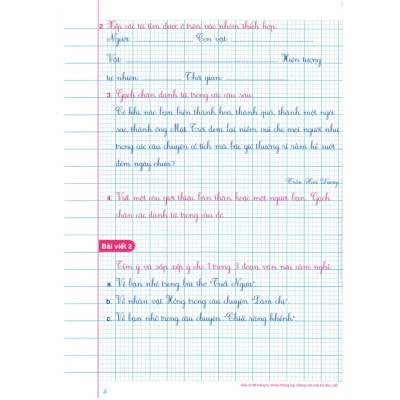 2. Xếp các từ tìm được ở trên vào nhóm thích hợp.
Người: Con vật:
Vật: Hiện tượng
tự nhiên: Thời gian:
3. Gạch chân danh từ trong các câu sau:
Có khi nào bạn biến thành hoa, thành quả, thành một ngôi
sao, thành ông Mặt Trời đem lại niềm vui cho mọi người như
trong các câu chuyện cổ tích mà bác gió thường rì rầm kể suốt
đêm ngày chưa?
Trần Hoài Dương
4. Viết một câu giới thiệu bản thân hoặc một người bạn. Gạch
chân các danh từ trong câu đó.
Bài viết 2
Tìm ý và sắp xếp ý cho 1 trong 3 đoạn văn nêu cảm nghĩ:
a. Về bạn nhỏ trong bài thơ "Tuổi Ngựa".
b. Về nhân vật Hồng trong câu chuyện "Làm chị".
c. Về bạn nhỏ trong câu chuyện "Chiếc răng khểnh".
4